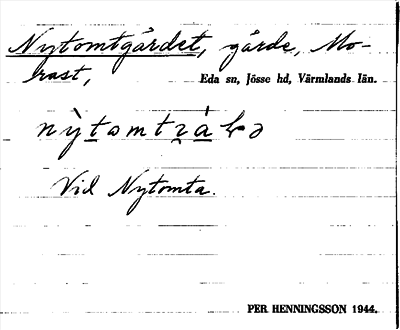 Nytomtgärdet, gärde, Mo-
rast,
Eda sn, Jösse hd, Värmlands län.
Vid Nytomta.
PER HENNINGSSON 1944.